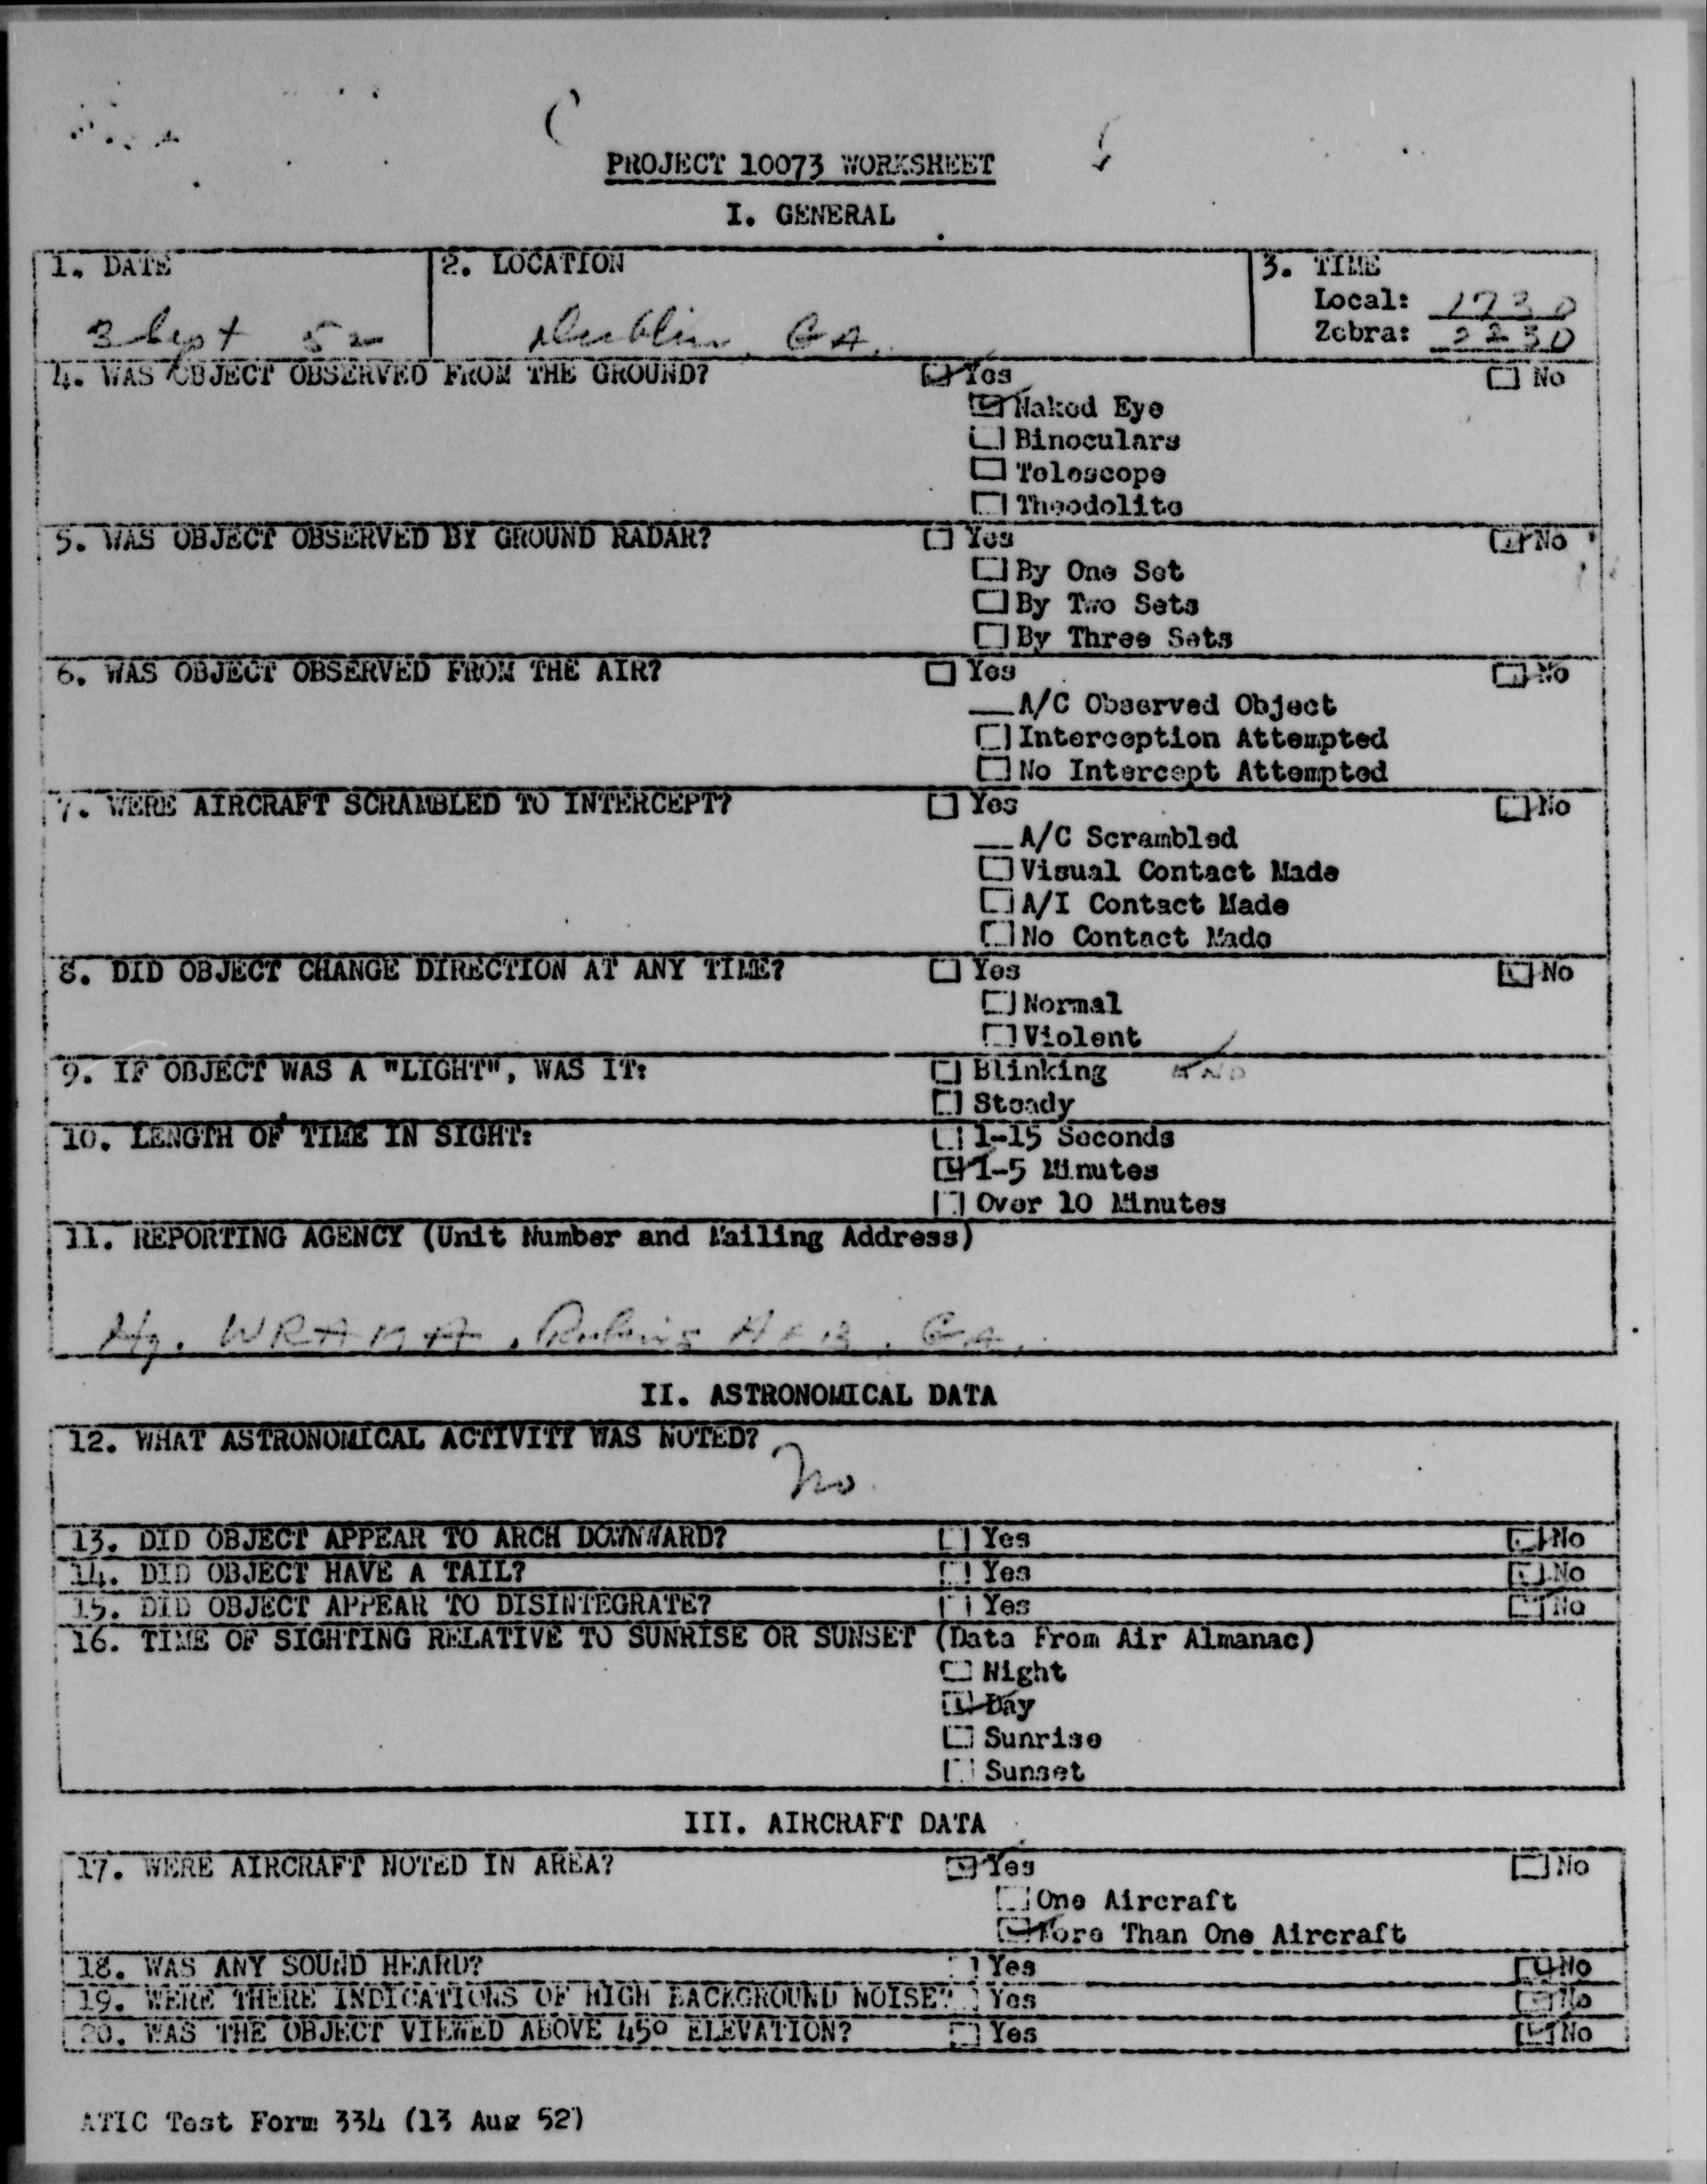 PROJECT 10073 WORKSHEET
I. GENERAL
1. DATE
3 Sept 52
2. LOCATION
Dublin, GA.
3. TIME
Local: 1730
Zebra: 2230
4. WAS OBJECT OBSERVED FROM THE GROUND? Yes No
Naked Eye
Binoculars
Telescope
Theodolite
5. WAS OBJECT OBSERVED BY GROUND RADAR? Yes No
By One Set
By Two Sets
By Three Sets
6. WAS OBJECT OBSERVED FROM THE AIR? Yes No
A/C Observed Object
Interception Attempted
No Intercept Attempted
7. WERE AIRCRAFT SCRAMBLED TO INTERCEPT? Yes No
A/C Scrambled
Visual Contact Made
A/I Contact Made
No Contact Made
8. DID OBJECT CHANGE DIRECTION AT ANY TIME? Yes No
Normal
Violent
9. IF OBJECT WAS A "LIGHT", WAS IT: Blinking
Steady
10. LENGTH OF TIME IN SIGHT: 1-15 Seconds
1-5 Minutes
Over 10 Minutes
11. REPORTING AGENCY (Unit Number and Mailing Address)
Hq. WRAMA, Robins AFB, GA.
II. ASTRONOMICAL DATA
12. WHAT ASTRONOMICAL ACTIVITY WAS NOTED?
No
13. DID OBJECT APPEAR TO ARCH DOWNWARD? Yes No
14. DID OBJECT HAVE A TAIL? Yes No
15. DID OBJECT APPEAR TO DISINTEGRATE? Yes No
16. TIME OF SIGHTING RELATIVE TO SUNRISE OR SUNSET (Data From Air Almanac)
Night
Day
Sunrise
Sunset
III. AIRCRAFT DATA
17. WERE AIRCRAFT NOTED IN AREA? Yes No
One Aircraft
More Than One Aircraft
18. WAS ANY SOUND HEARD? Yes No
19. WERE THERE INDICATIONS OF HIGH BACKGROUND NOISE? Yes No
20. WAS THE OBJECT VIEWED ABOVE 45° ELEVATION? Yes No
ATIC Test Form 334 (13 Aug 52)